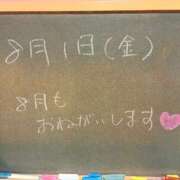 8月1日(金)
8月も
おねがいします